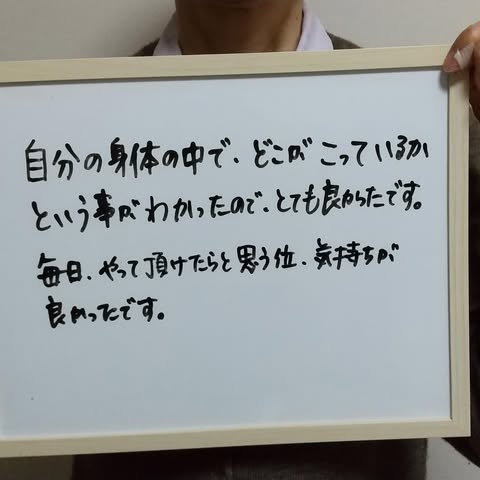 自分の身体の中で、どこがこっているか
という事がわかったので、とても良かったです。
毎日、やって頂けたらと思う位、気持ちが
良かったです。